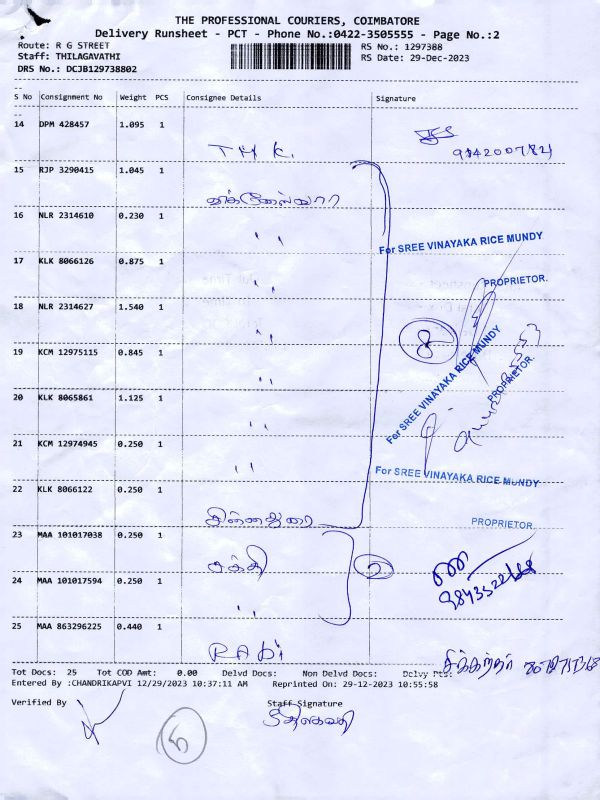 THE PROFESSIONAL COURIERS, COIMBATORE
Delivery Runsheet - PCT - Phone No.:0422-3505555 - Page No.:2
Route: R G STREET
RS No.: 1297388
Staff: THILAGAVATHI
RS Date: 29-Dec-2023
DRS No.: DCJB129738802
S No Consignment No Weight PCS Consignee Details Signature
14 DPM 428457 1.095 1
T M K.
15 RJP 3290415 1.045 1
16 NLR 2314610 0.230 1
" 
For SREE VINAYAKA RICE MUNDY
17 KLK 8066126 0.875 1
PROPRIETOR.
"
18 NLR 2314627 1.540 1
"
8
19 KCM 12975115 0.845 1
"
For SREE VINAYAKA RICE MUNDY
PROPRIETOR.
20 KLK 8065861 1.125 1
"
21 KCM 12974945 0.250 1
"
For SREE VINAYAKA RICE MUNDY
22 KLK 8066122 0.250 1
சின்னதுரை
PROPRIETOR.
23 MAA 101017038 0.250 1
சக்தி
24 MAA 101017594 0.250 1
"
25 MAA 863296225 0.440 1
RABi
Tot Docs: 25 Tot COD Amt: 0.00 Delvd Docs: Non Delvd Docs: Delvy Pts:
Entered By :CHANDRIKAPVI 12/29/2023 10:37:11 AM Reprinted On: 29-12-2023 10:55:58
Verified By
Staff Signature
திலகவதி
5